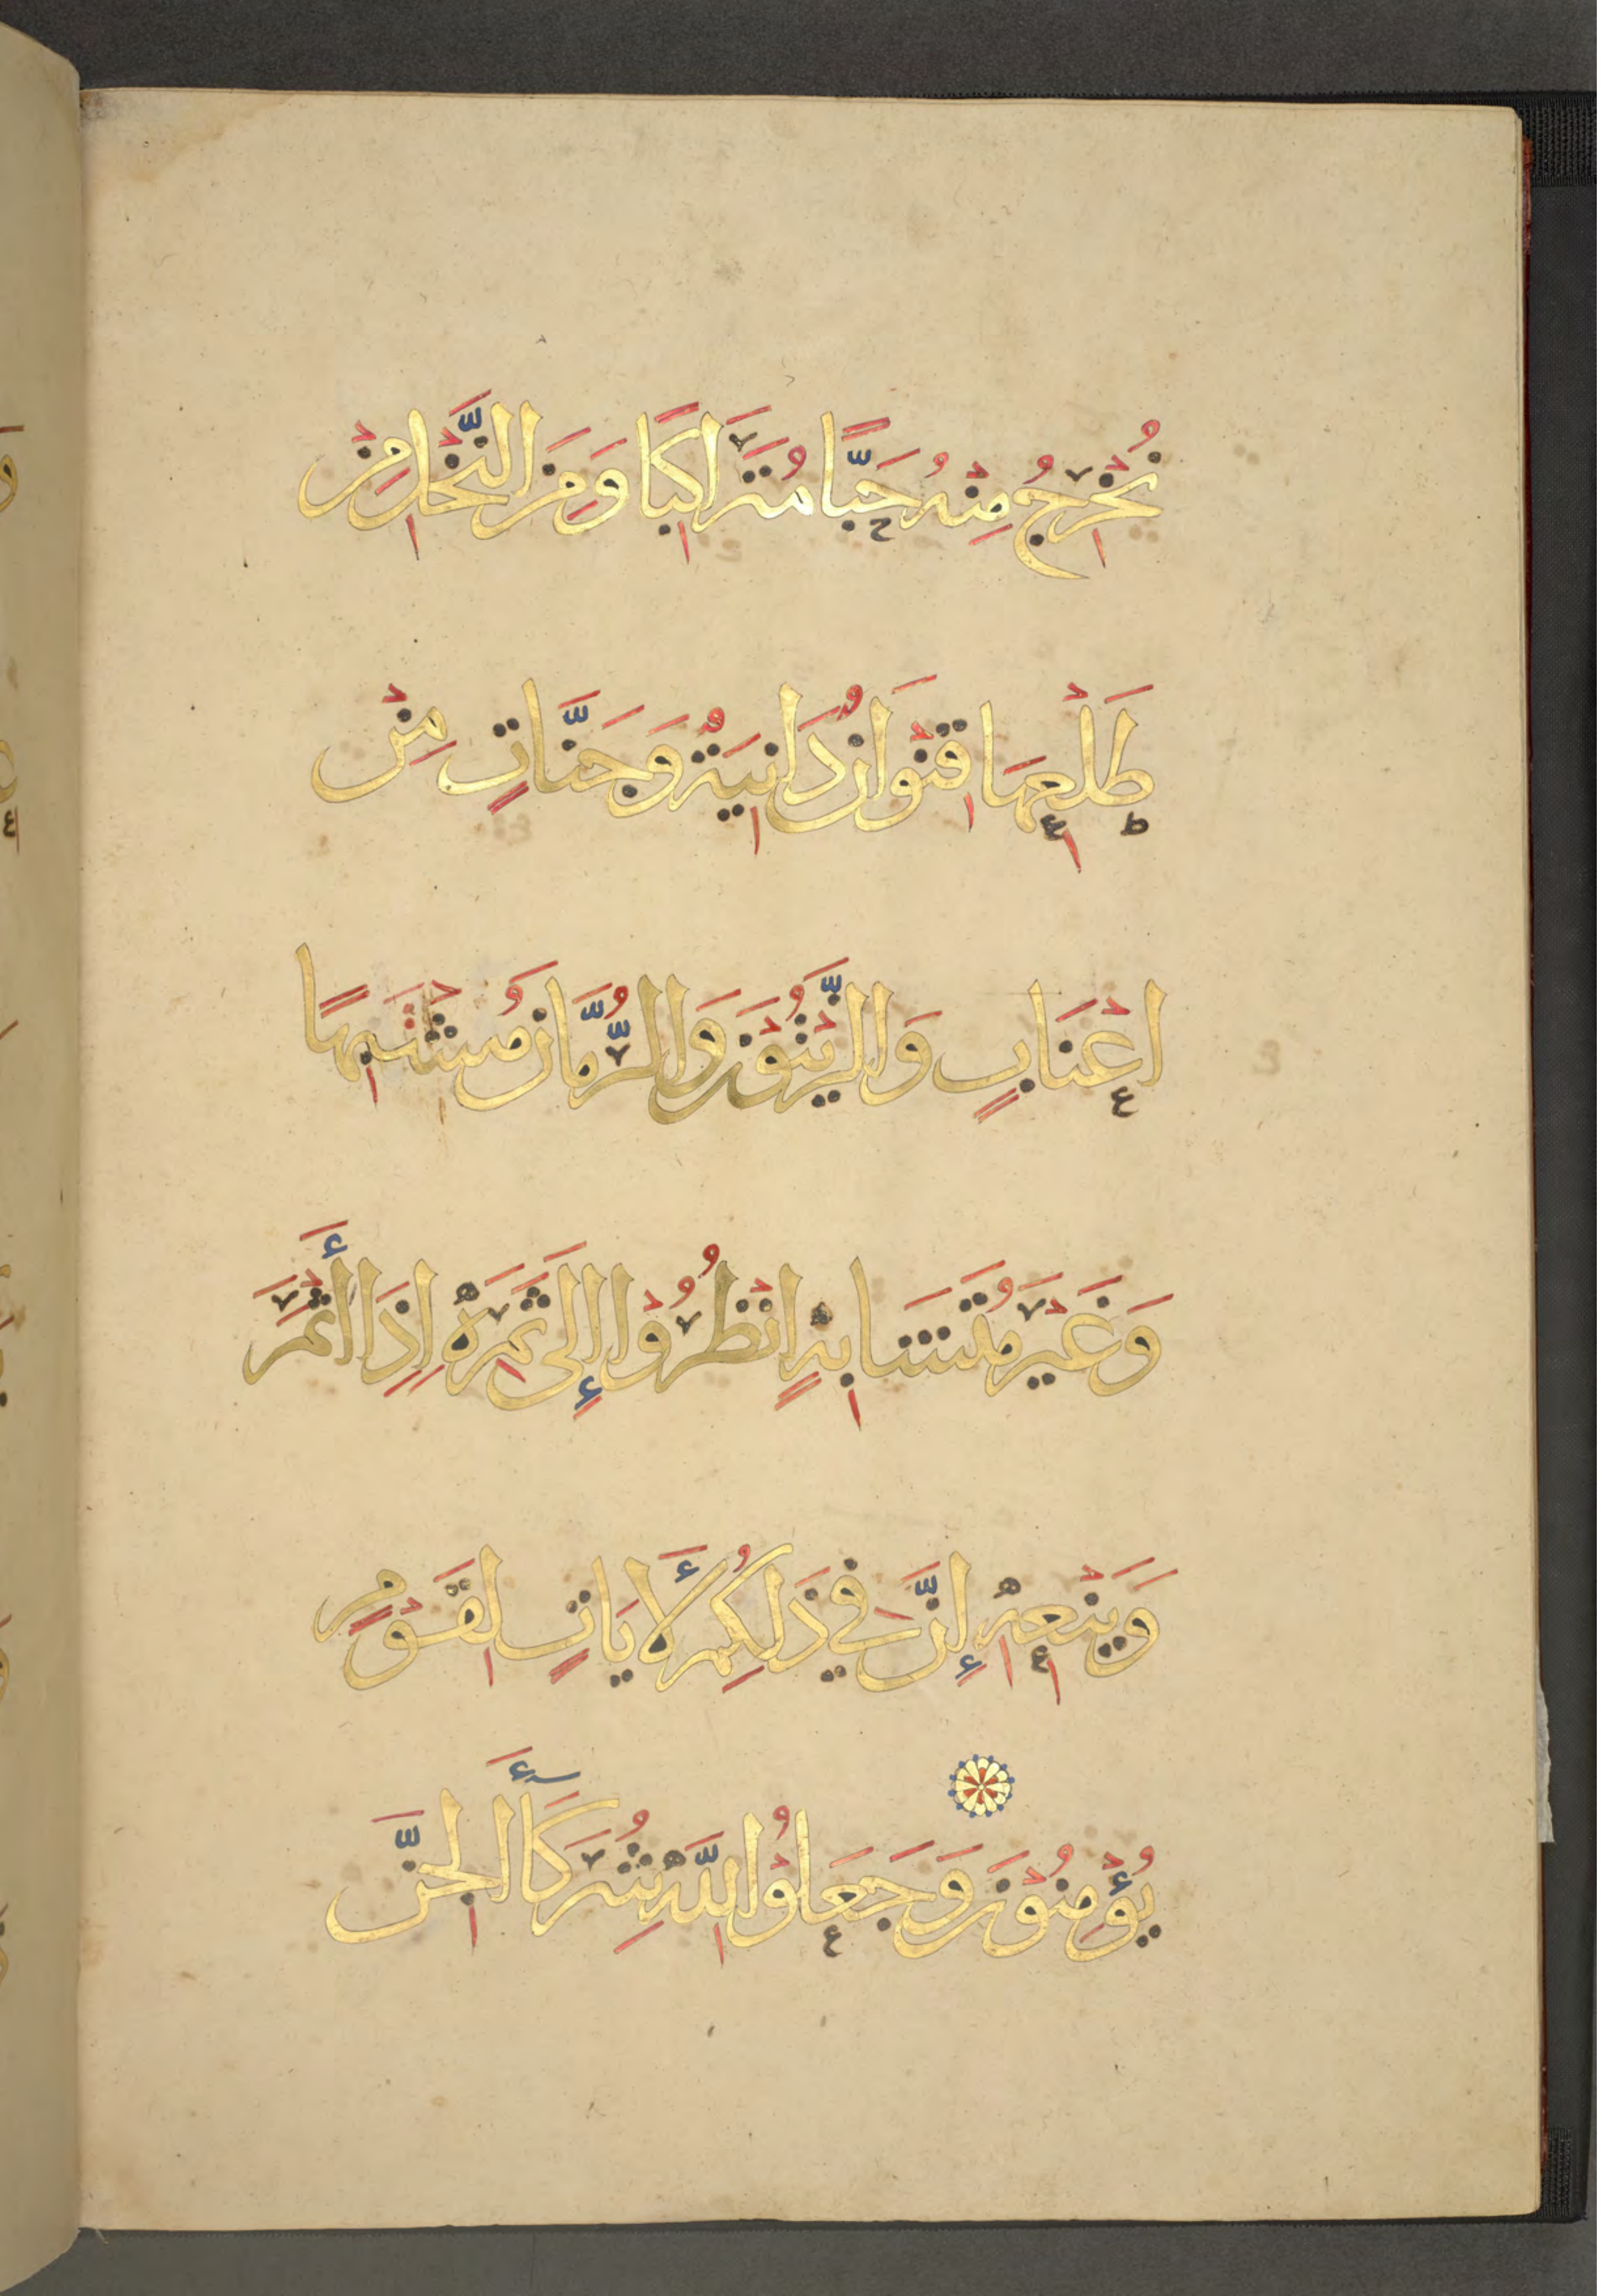 نُخْرِجُ مِنْهُ حَبًّا مُتَرَاكِبًا وَمِنَ النَّخْلِ مِنْ
طَلْعِهَا قِنْوَانٌ دَانِيَةٌ وَجَنَّاتٍ مِنْ
اعْنَابٍ وَالزَّيْتُوْنَ وَالرُّمَّانَ مُشْتَبِهًا
وَغَيْرَ مُتَشَابِهٍ انْظُرُوْا إِلَى ثَمَرِهِ إِذَا أَثْمَرَ
وَيَنْعِهِ إِنَّ فِي ذَلِكُمْ لَأَيَاتٍ لِقَوْمٍ
يُؤْمِنُوْنَ وَجَعَلُوْا لِلَّهِ شُرَكَأَ الْجِنَّ